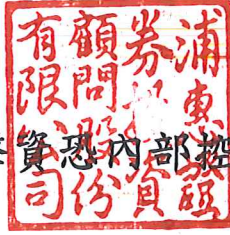 浦惠證
券投資
顧問股份
有限公司
資恐內部控